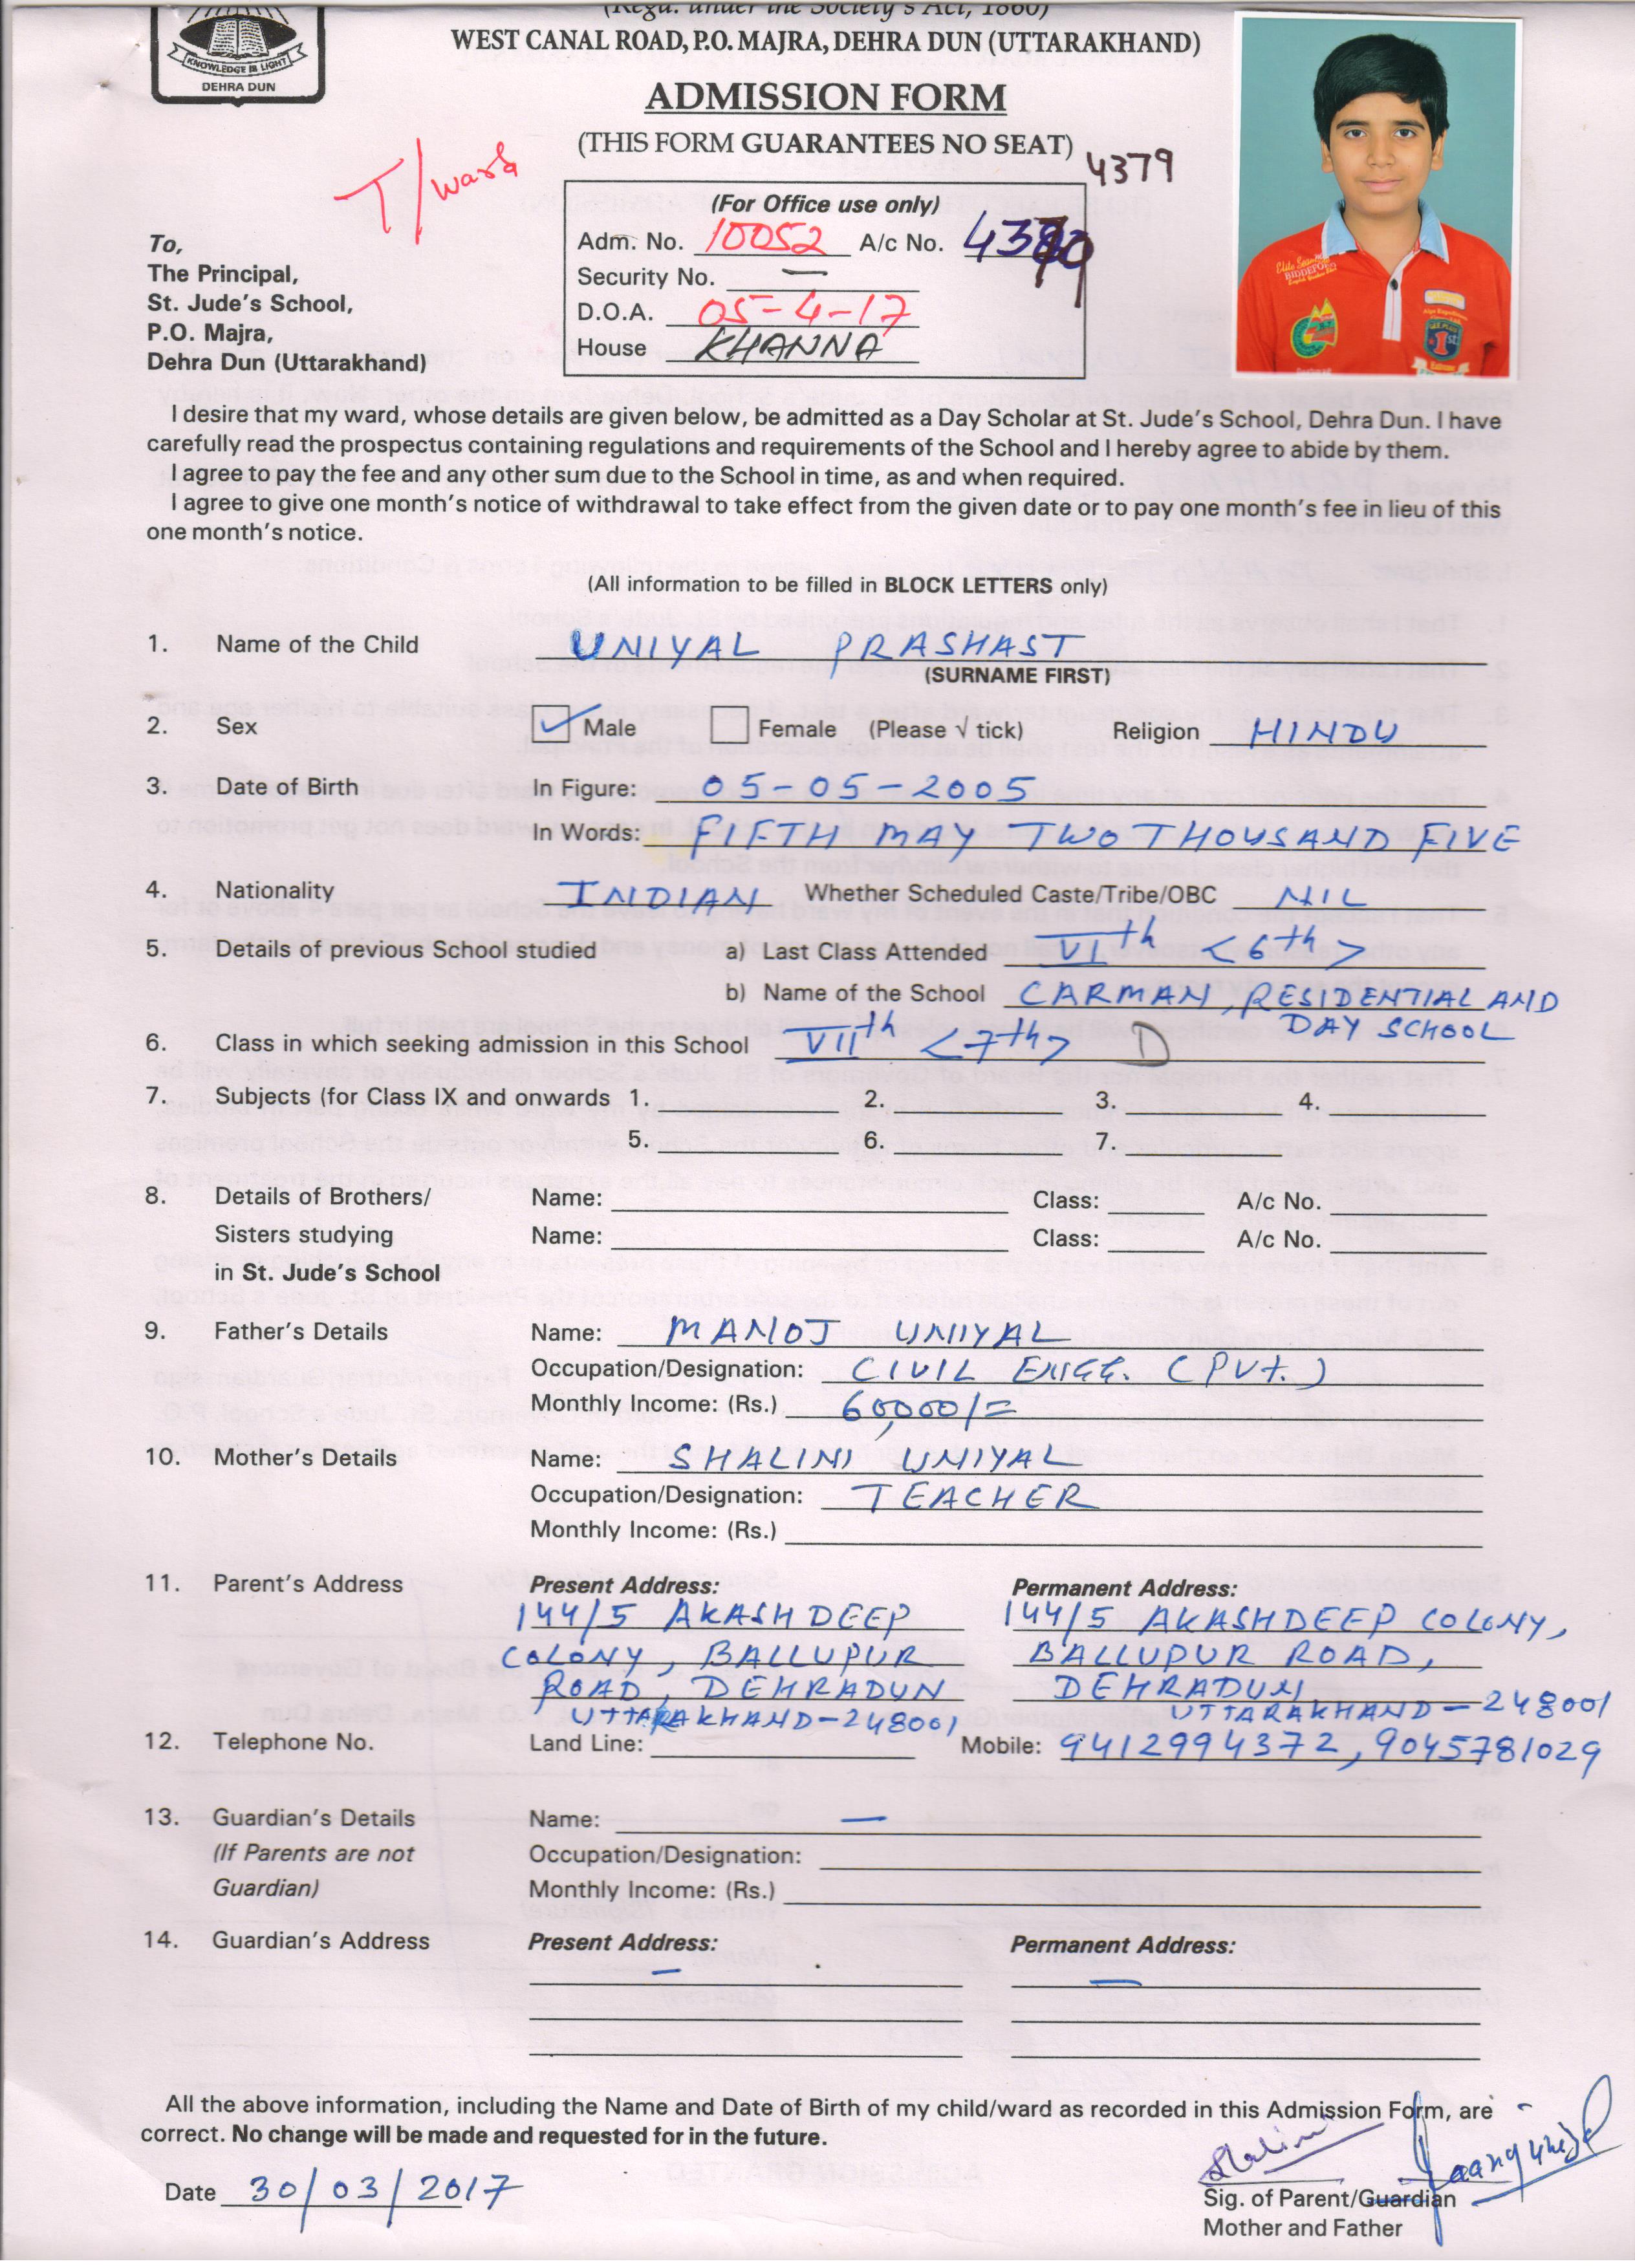 (Regd. under the Society's Act, 1860)
WEST CANAL ROAD, P.O. MAJRA, DEHRA DUN (UTTARAKHAND)
KNOWLEDGE IS LIGHT
DEHRA DUN
ADMISSION FORM
(THIS FORM GUARANTEES NO SEAT)
4379
T/ward
(For Office use only)
Adm. No. 10052 A/c No.
Security No. —
D.O.A. 05-4-17
House KHANNA
To,
The Principal,
St. Jude's School,
P.O. Majra,
Dehra Dun (Uttarakhand)
I desire that my ward, whose details are given below, be admitted as a Day Scholar at St. Jude's School, Dehra Dun. I have
carefully read the prospectus containing regulations and requirements of the School and I hereby agree to abide by them.
I agree to pay the fee and any other sum due to the School in time, as and when required.
I agree to give one month's notice of withdrawal to take effect from the given date or to pay one month's fee in lieu of this
one month's notice.
(All information to be filled in BLOCK LETTERS only)
1. Name of the Child UNIYAL PRASHAST
(SURNAME FIRST)
2. Sex ✓ Male Female (Please √ tick) Religion HINDU
3. Date of Birth In Figure: 05-05-2005
In Words: FIFTH MAY TWO THOUSAND FIVE
4. Nationality INDIAN Whether Scheduled Caste/Tribe/OBC NIL
5. Details of previous School studied a) Last Class Attended VIth <6th>
b) Name of the School CARMAN, RESIDENTIAL AND
DAY SCHOOL
6. Class in which seeking admission in this School VIIth <7th> D
7. Subjects (for Class IX and onwards 1. 2. 3. 4.
5. 6. 7.
8. Details of Brothers/ Name: Class: A/c No.
Sisters studying Name: Class: A/c No.
in St. Jude's School
9. Father's Details Name: MANOJ UNIYAL
Occupation/Designation: CIVIL ENGG. (PVt.)
Monthly Income: (Rs.) 60,000/=
10. Mother's Details Name: SHALINI UNIYAL
Occupation/Designation: TEACHER
Monthly Income: (Rs.)
11. Parent's Address Present Address: Permanent Address:
144/5 AKASHDEEP 144/5 AKASHDEEP COLONY,
COLONY, BALLUPUR BALLUPUR ROAD,
ROAD, DEHRADUN DEHRADUN
UTTARAKHAND-248001 UTTARAKHAND-248001
12. Telephone No. Land Line: Mobile: 9412994372, 9045781029
13. Guardian's Details Name: —
(If Parents are not Occupation/Designation:
Guardian) Monthly Income: (Rs.)
14. Guardian's Address Present Address: Permanent Address:
— —
All the above information, including the Name and Date of Birth of my child/ward as recorded in this Admission Form, are
correct. No change will be made and requested for in the future.
Shalini
Date 30/03/2017
Sig. of Parent/Guardian
Mother and Father